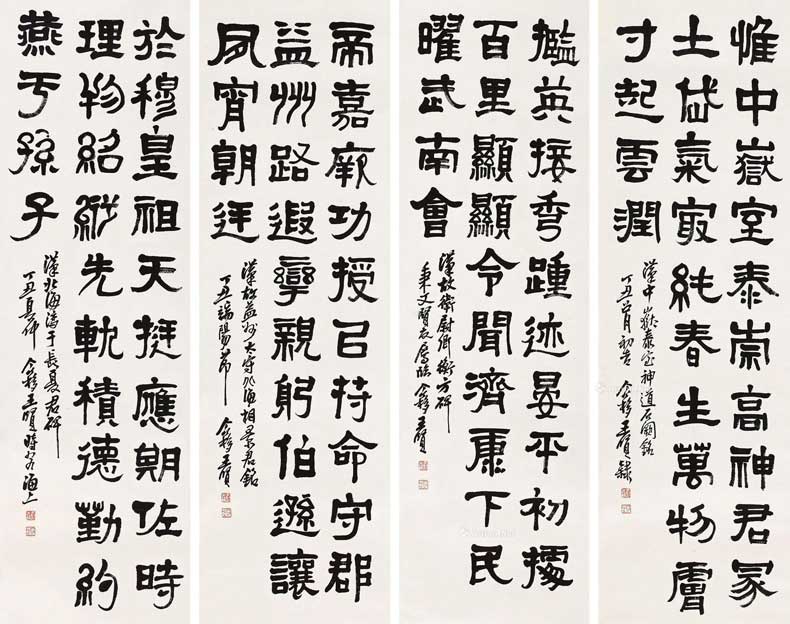 惟中嶽室泰崇高神君冢
土岱氣冣純春生萬物膚
寸起雲潤
漢中嶽泰室神道石闕銘
丁丑月初吉 个簃王賢錄
攬英接秀踵迹晏平初據
百里顯顯令聞濟康下民
曜武南會
漢故衛尉卿衡方碑
秉文賢友屬臨 个簃王賢
帝嘉厥功授㠯持命守郡
益州路遐攣親躬伯遜讓
夙宵朝廷
漢故益州太守北海相景君銘
丁丑端陽節 个簃王賢
於穆皇祖天挺應期佐時
理物紹縱先軌積德勤約
燕于孫子
漢北海淳于長夏君碑
丁丑夏仲 个簃王賢時客海上